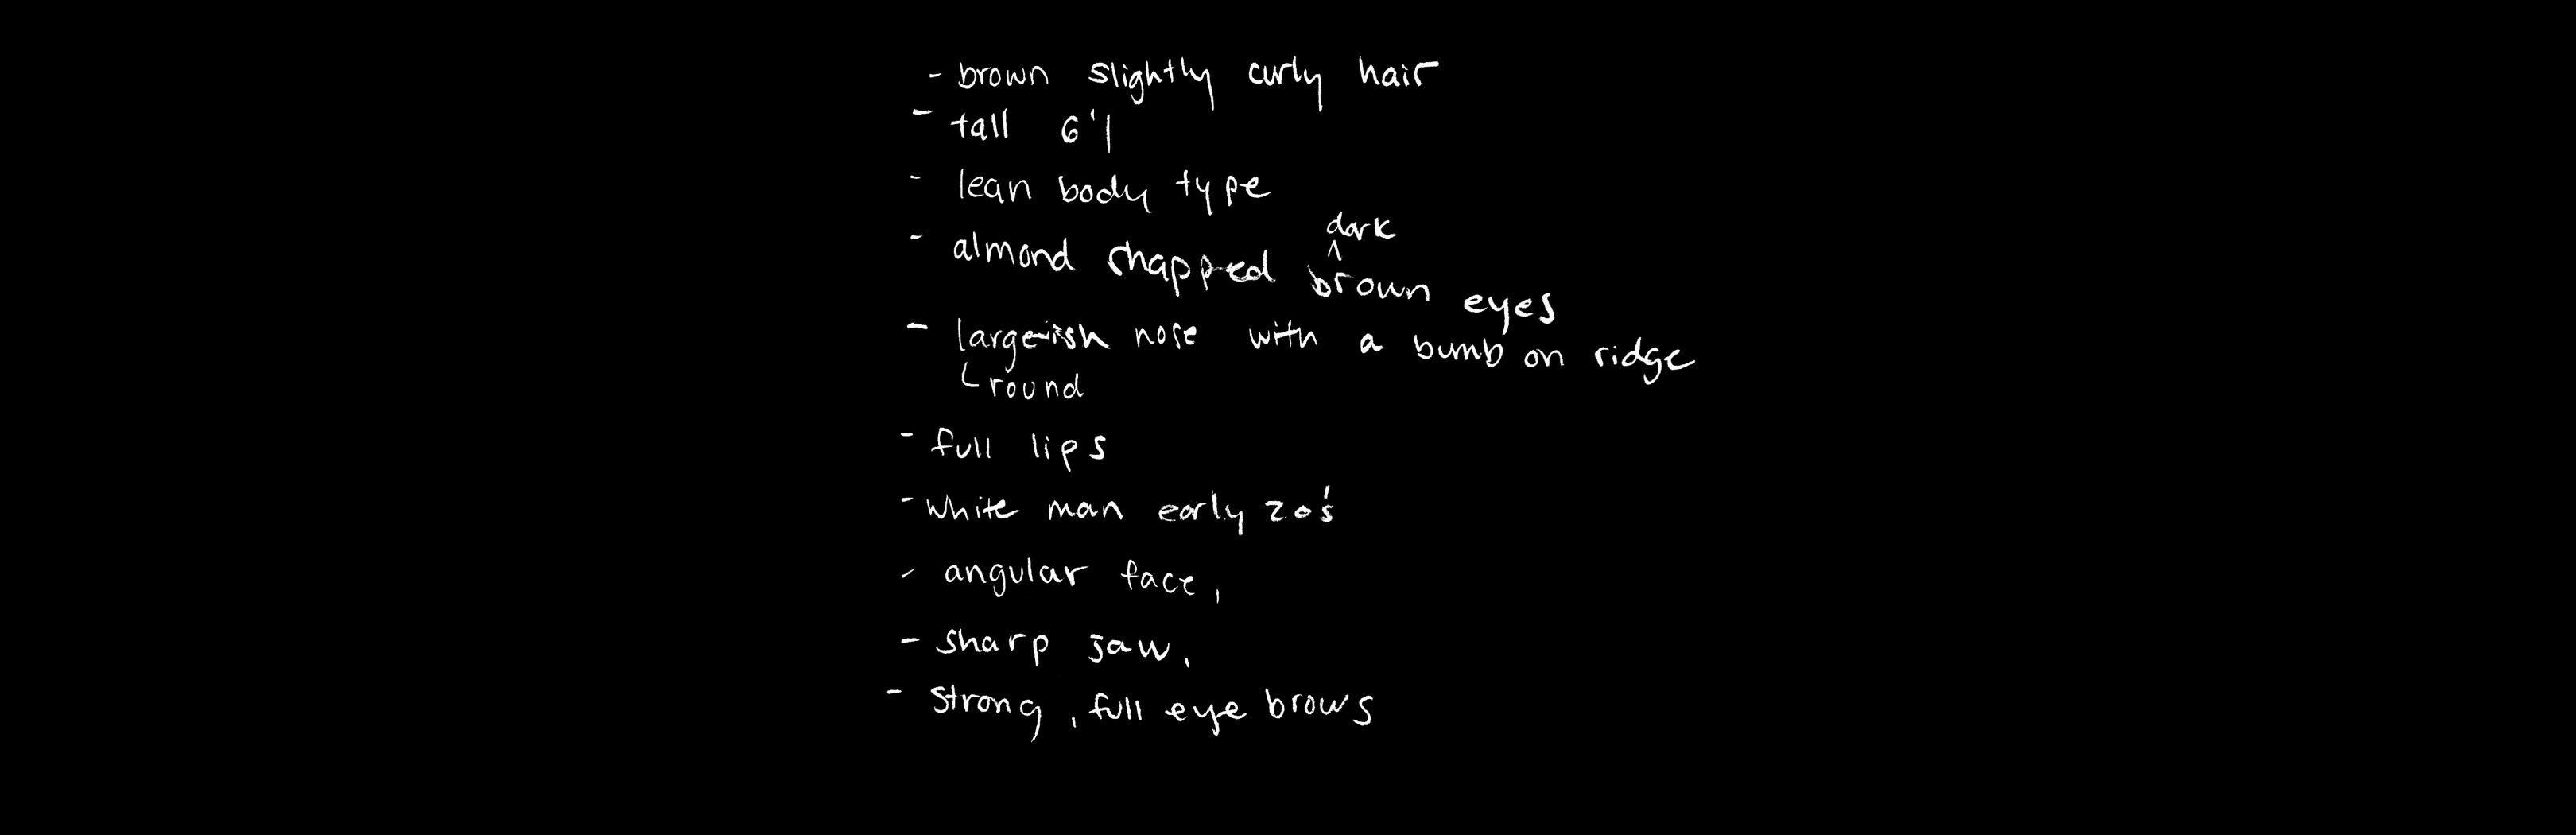 - brown slightly curly hair
- tall 6'1
- lean body type
- almond shapped dark brown eyes
- large-ish nose with a bumb on ridge
round
- full lips
- white man early 20's
- angular face,
- sharp jaw,
- strong, full eye brows